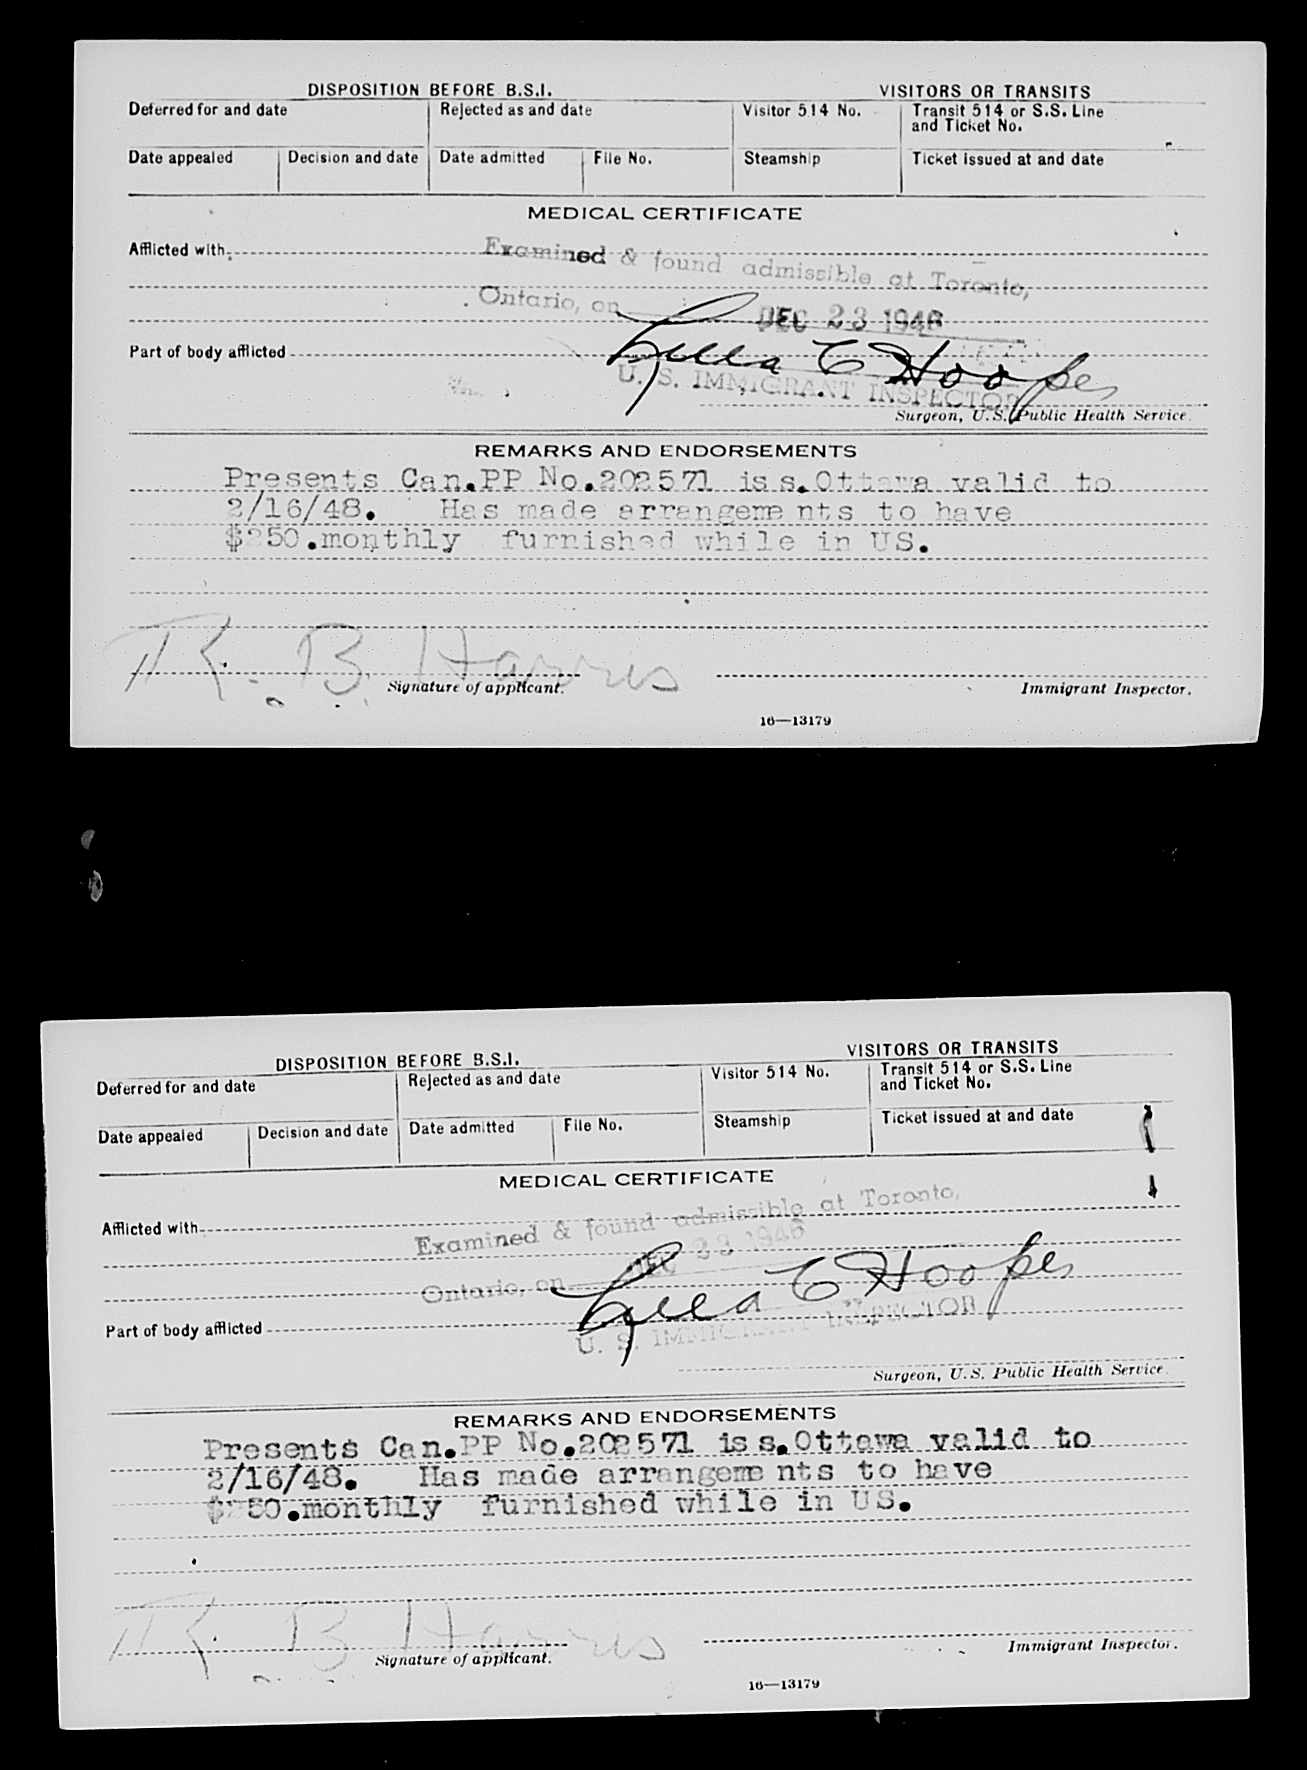 DISPOSITION BEFORE B.S.I. VISITORS OR TRANSITS
Deferred for and date Rejected as and date Visitor 514 No. Transit 514 or S.S. Line and Ticket No.
Date appealed Decision and date Date admitted File No. Steamship Ticket issued at and date
MEDICAL CERTIFICATE
Afflicted with
Examined & found admissible at Toronto,
Ontario, on DEC 23 1946
Part of body afflicted
C Hooper
U. S. IMMIGRANT INSPECTOR
Surgeon, U.S. Public Health Service.
REMARKS AND ENDORSEMENTS
Presents Can.PP No.202571 iss.Ottawa valid to
2/16/48. Has made arrangements to have
$250.monthly furnished while in US.
R. B. Harris
Signature of applicant. Immigrant Inspector.
16—13179
DISPOSITION BEFORE B.S.I. VISITORS OR TRANSITS
Deferred for and date Rejected as and date Visitor 514 No. Transit 514 or S.S. Line and Ticket No.
Date appealed Decision and date Date admitted File No. Steamship Ticket issued at and date
MEDICAL CERTIFICATE
Afflicted with
Examined & found admissible at Toronto,
Ontario, on DEC 23 1946
Part of body afflicted
C Hooper
U. S. IMMIGRANT INSPECTOR
Surgeon, U.S. Public Health Service.
REMARKS AND ENDORSEMENTS
Presents Can.PP No.202571 iss.Ottawa valid to
2/16/48. Has made arrangements to have
$250.monthly furnished while in US.
R. B. Harris
Signature of applicant. Immigrant Inspector.
16—13179